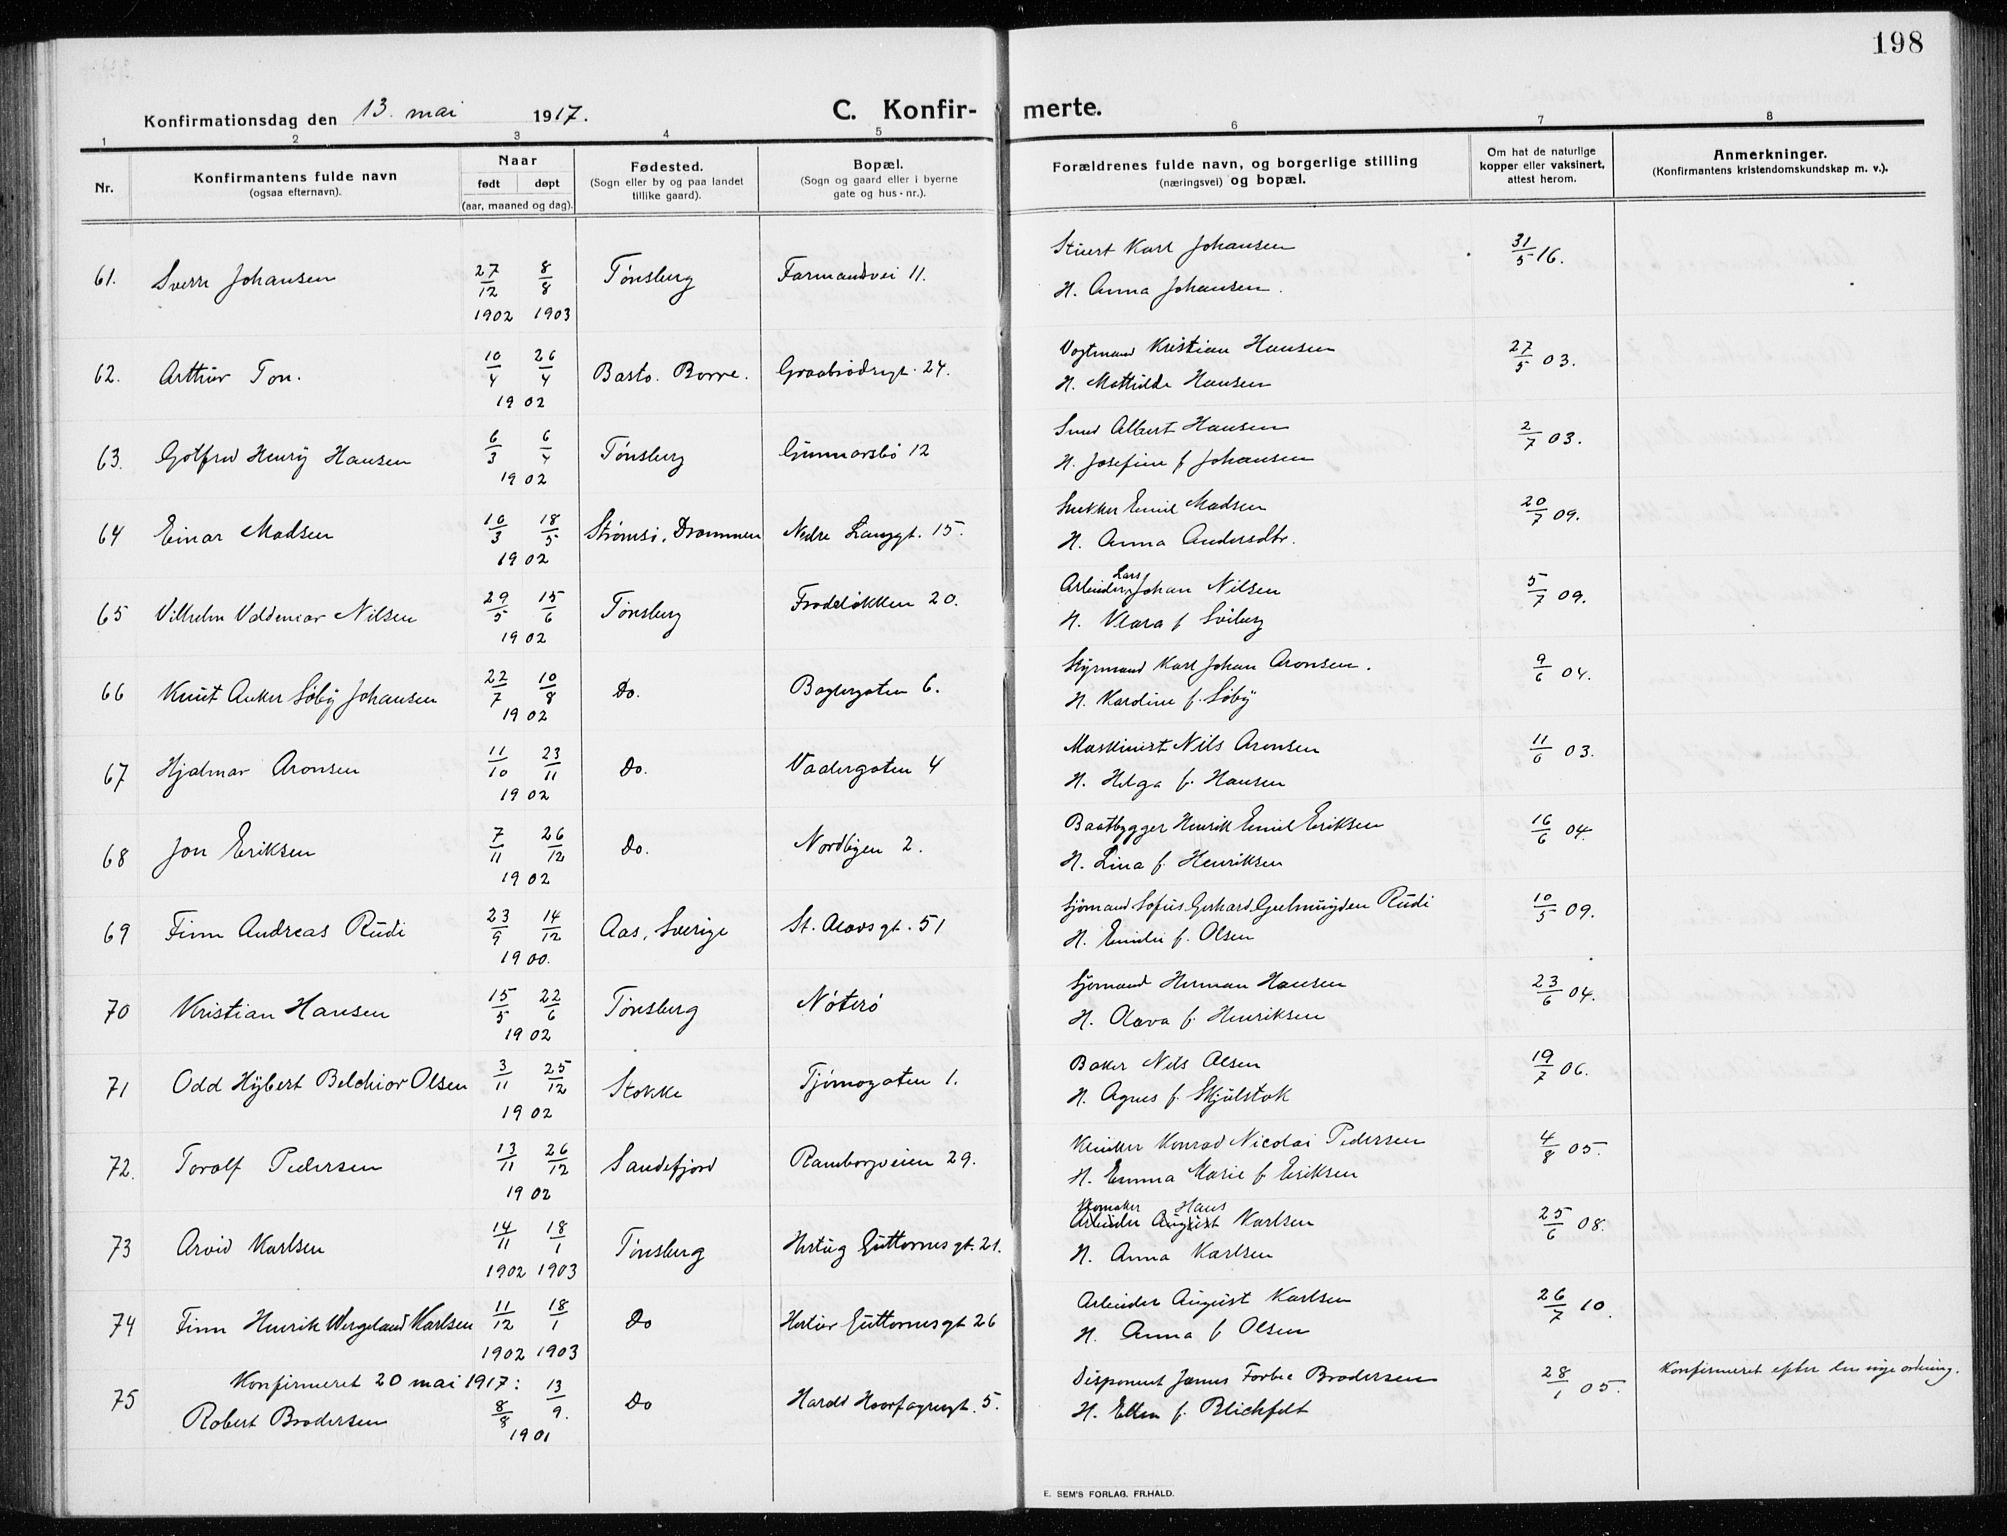 198
Konfirmationsdag den 13. mai 1917.
C. Konfirmerte.
1 2 3 4 5 6 7 8
Nr.
Konfirmantens fulde navn
(ogsaa efternavn).
Naar
født døpt
(aar, maaned og dag).
Fødested.
(Sogn eller by og paa landet
tillike gaard).
Bopæl.
(Sogn og gaard eller i byerne
gate og hus-nr.).
Forældrenes fulde navn, og borgerlige stilling
(næringsvei) og bopæl.
Om hat de naturlige
kopper eller vaksinert,
attest herom.
Anmerkninger.
(Konfirmantens kristendomskundskap m. v.).
61. Sverre Johansen 27/12 1902 8/8 1903 Tønsberg Farmandsvei 11. Stuert Karl Johansen 31/5 16.
H. Anna Johansen.
62. Arthur Ton. 10/4 26/4 1902 Bastø. Borre. Graabrødregt. 24. Vogtmand Kristian Hansen 27/5 03.
H. Mathilde Hansen
63. Gotfred Henry Hansen 6/3 6/4 1902 Tønsberg Gunnarsbø 12 Smed Albert Hansen 2/7 03.
H. Josefine f Johansen
64 Einar Madsen 10/3 18/5 1902 Strømsø, Drammen Nedre Langgt. 15. Snekker Emil Madsen 20/7 09.
H. Anna Andersdtr.
65 Vilhelm Valdemar Nilsen 29/5 15/6 1902 Tønsberg Frodeløkken 20. Arbeider Lars Johan Nilsen 5/7 09.
H. Klara f Solberg
66 Knut Anker Søby Johansen 22/7 10/8 1902 Do. Baglergaten 6. Styrmand Karl Johan Aronsen. 9/6 04.
H. Karoline f. Søby
67 Hjalmar Aronsen 11/10 23/11 1902 Do. Vadergaten 4 Maskinist Nils Aronsen 11/6 03.
H. Helga f. Hansen
68 Jon Eriksen 7/11 26/12 1902 Do. Nordbyen 2. Baatbygger Henrik Emil Eriksen 16/6 04.
H. Lina f. Henriksen
69 Finn Andreas Rudi 23/9 14/12 1900. Aas, Sverige St. Olavsgt. 51 Sjømand Sofus Gerhard Gulmuyden Rudi 10/5 09.
H. Emilie f. Olsen
70 Kristian Hansen 15/5 22/6 1902 Tønsberg Nøterø Sjømand Herman Hansen 23/6 04.
H. Olava f. Henriksen
71 Odd Hybert Belchior Olsen 3/11 25/12 1902 Stokke Tjømogaten 1. Baker Nils Olsen 19/7 06.
H. Agnes f. Skjulstok
72. Toralf Pedersen 13/11 26/12 1902 Sandefjord Ramborgveien 29. Klinker Konrad Nicolai Pedersen 4/8 05.
H. Emma Marie f Eriksen
73 Arvid Karlsen 14/11 1902 18/1 1903 Tønsberg Hertug Guttormsgt. 21. Skomaker Hans Arbeider August Karlsen 25/6 08.
H. Anna Karlsen
74 Finn Henrik Wergeland Karlsen 11/12 1902 18/1 1903 Do Hertug Guttormsgt 26 Arbeider August Karlsen 26/7 10.
H. Anna f Olsen
Konfirmeret 20 mai 1917:
75 Robert Brodersen 8/8 13/9. 1901 Do Harald Haarfagresgt. 5. Disponent James Forbe Brodersen 28/1 05. Konfirmeret efter den nye ordning.
H. Ellen f. Blichfelt
E. SEM'S FORLAG. FR.HALD.